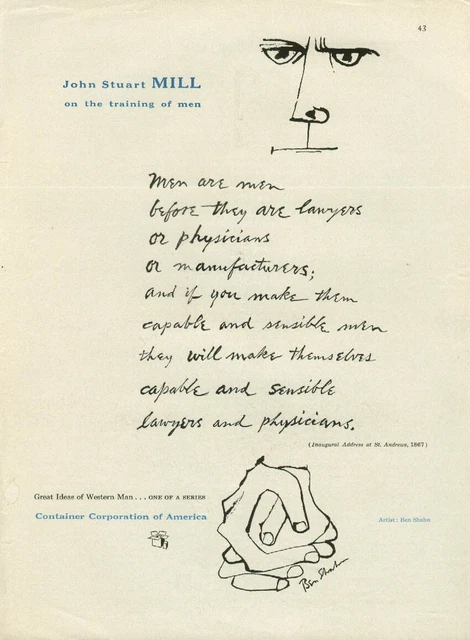 43
John Stuart MILL
on the training of men
Men are men
before they are lawyers
or physicians
or manufacturers;
and if you make them
capable and sensible men
they will make themselves
capable and sensible
lawyers and physicians.
(Inaugural Address at St. Andrews, 1867)
Great Ideas of Western Man... ONE OF A SERIES
Container Corporation of America
Artist: Ben Shahn
Ben Shahn